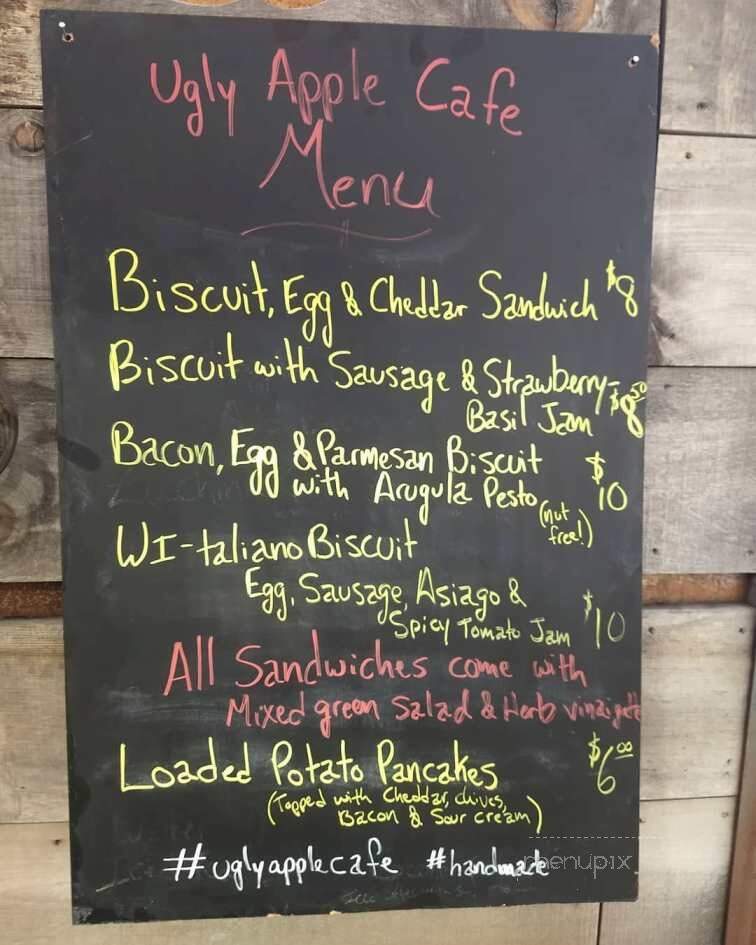 Ugly Apple Cafe
Menu
Biscuit, Egg & Cheddar Sandwich $8
Biscuit with Sausage & Strawberry-
Basil Jam $8.50
Bacon, Egg & Parmesan Biscuit
with Arugula Pesto $10
(nut
free!)
WI-taliano Biscuit
Egg, Sausage, Asiago &
Spicy Tomato Jam $10
All Sandwiches come with
Mixed green Salad & Herb vinaigrette
Loaded Potato Pancakes $6.00
(Topped with Cheddar, chives,
Bacon & Sour cream)
#uglyapplecafe #handmade
menupix